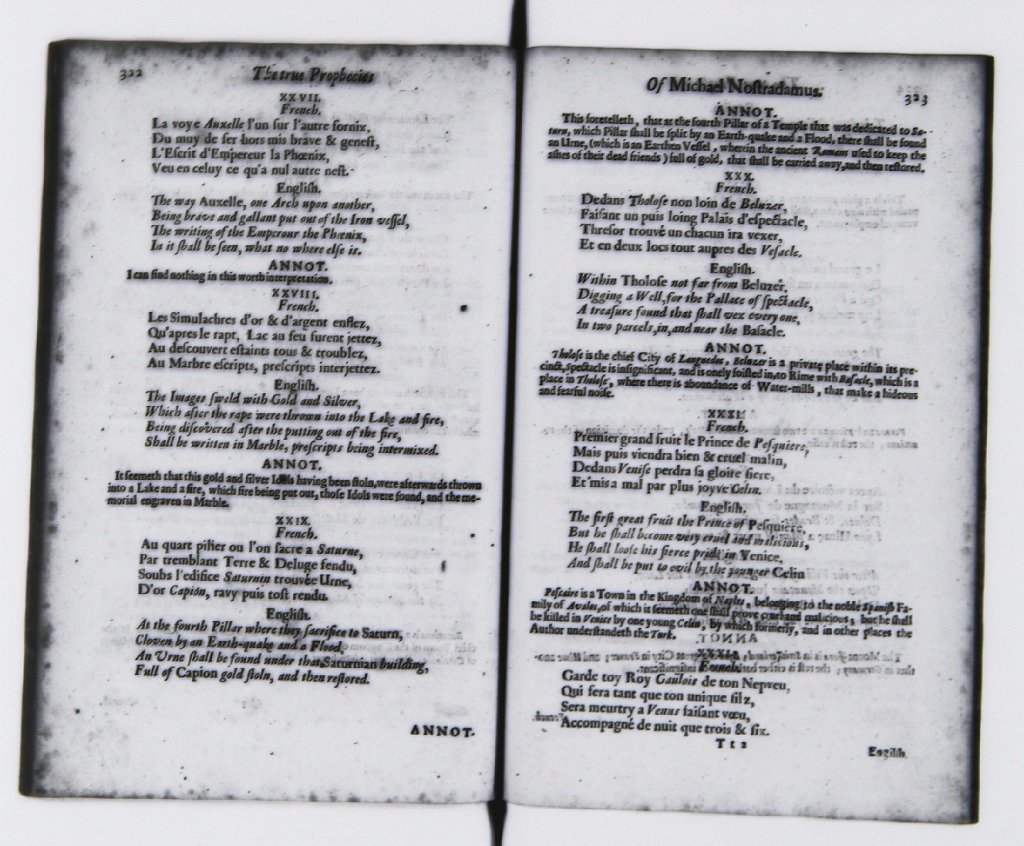 322
The true Prophecies
XXVII.
French.
La voye Auxelle l'un ſur l'autre fornix,
Du muy de ſer hors mis brave & geneſt,
L'Eſcrit d'Empereur la Phœnix,
Veu en celuy ce qu'a nul autre neſt.
Engliſh.
The way Auxelle, one Arch upon another,
Being brave and gallant put out of the Iron veſſel,
The writing of the Emperour the Phœnix,
In it ſhall be ſeen, what no where elſe is.
ANNOT.
I can find nothing in this worth interpretation.
XXVIII.
French.
Les Simulachres d'or & d'argent enflez,
Qu'apres le rapt, Lac au feu furent jettez,
Au deſcouvert eſtaints tous & troublez,
Au Marbre eſcripts, preſcripts interjettez.
Engliſh.
The Images ſweld with Gold and Silver,
Which after the rape were thrown into the Lake and fire,
Being diſcovered after the putting out of the fire,
Shall be written in Marble, preſcripts being intermixed.
ANNOT.
It ſeemeth that this gold and ſilver Idols having been ſtoln, were afterwards thrown
into a Lake and a fire, which fire being put out, thoſe Idols were found, and the me-
morial engraven in Marble.
XXIX.
French.
Au quart pilier ou l'on ſacre a Saturne,
Par tremblant Terre & Deluge fendu,
Soubs l'edifice Saturnin trouvée Urne,
D'or Capion, ravy puis toſt rendu.
Engliſh.
At the fourth Pillar where they ſacrifice to Saturn,
Cloven by an Earth-quake and a Flood,
An Urne ſhall be found under that Saturnian building,
Full of Capion gold ſtoln, and then reſtored.
ANNOT.
Of Michael Noſtradamus.
323
ANNOT.
This foretelleth, that at the fourth Pillar of a Temple that was dedicated to Sa-
turn, which Pillar ſhall be ſplit by an Earth-quake and a Flood, there ſhall be found
an Urne, (which is an Earthen Veſſel, wherein the ancient Romans uſed to keep the
aſhes of their dead friends) full of gold, that ſhall be carried away, and then reſtored.
XXX.
French.
Dedans Tholoſe non loin de Beluzer,
Faiſant un puis loing Palais d'eſpectacle,
Threſor trouvé un chacun ira vexer,
Et en deux locs tout aupres des Veſacle.
Engliſh.
Within Tholoſe not far from Beluzer,
Digging a Well, for the Pallace of ſpectacle,
A treaſure found that ſhall vex every one,
In two parcels, in, and near the Baſacle.
ANNOT.
Tholoſe is the chief City of Languedoc, Beluzer is a private place within its pre-
cinct, ſpectacle is inſignificant, and is onely foiſted in, to Rime with Baſacle, which is a
place in Tholoſe, where there is aboundance of Water-mills, that make a hideous
and fearful noiſe.
XXXI.
French.
Premier grand fruit le Prince de Peſquiere,
Mais puis viendra bien & cruel malin,
Dedans Veniſe perdra ſa gloire fiere,
Et mis a mal par plus joyve Celin.
Engliſh.
The firſt great fruit the Prince of Peſquiere,
But he ſhall become very cruel and malicious,
He ſhall looſe his fierce pride in Venice,
And ſhall be put to evil by the younger Celin
ANNOT.
Peſcaire is a Town in the Kingdom of Naples, belonging to the noble Spaniſh Fa-
mily of Avalos, of which it ſeemeth one ſhall prove cruel and malicious, but he ſhall
be killed in Venice by one young Celin, by which formerly, and in other places the
Author underſtandeth the Turk.
XXXII.
French.
Garde toy Roy Gaulois de ton Nepveu,
Qui fera tant que ton unique filz,
Sera meurtry a Venus faiſant vœu,
Accompagné de nuit que trois & ſix.
Tt2
Engliſh.